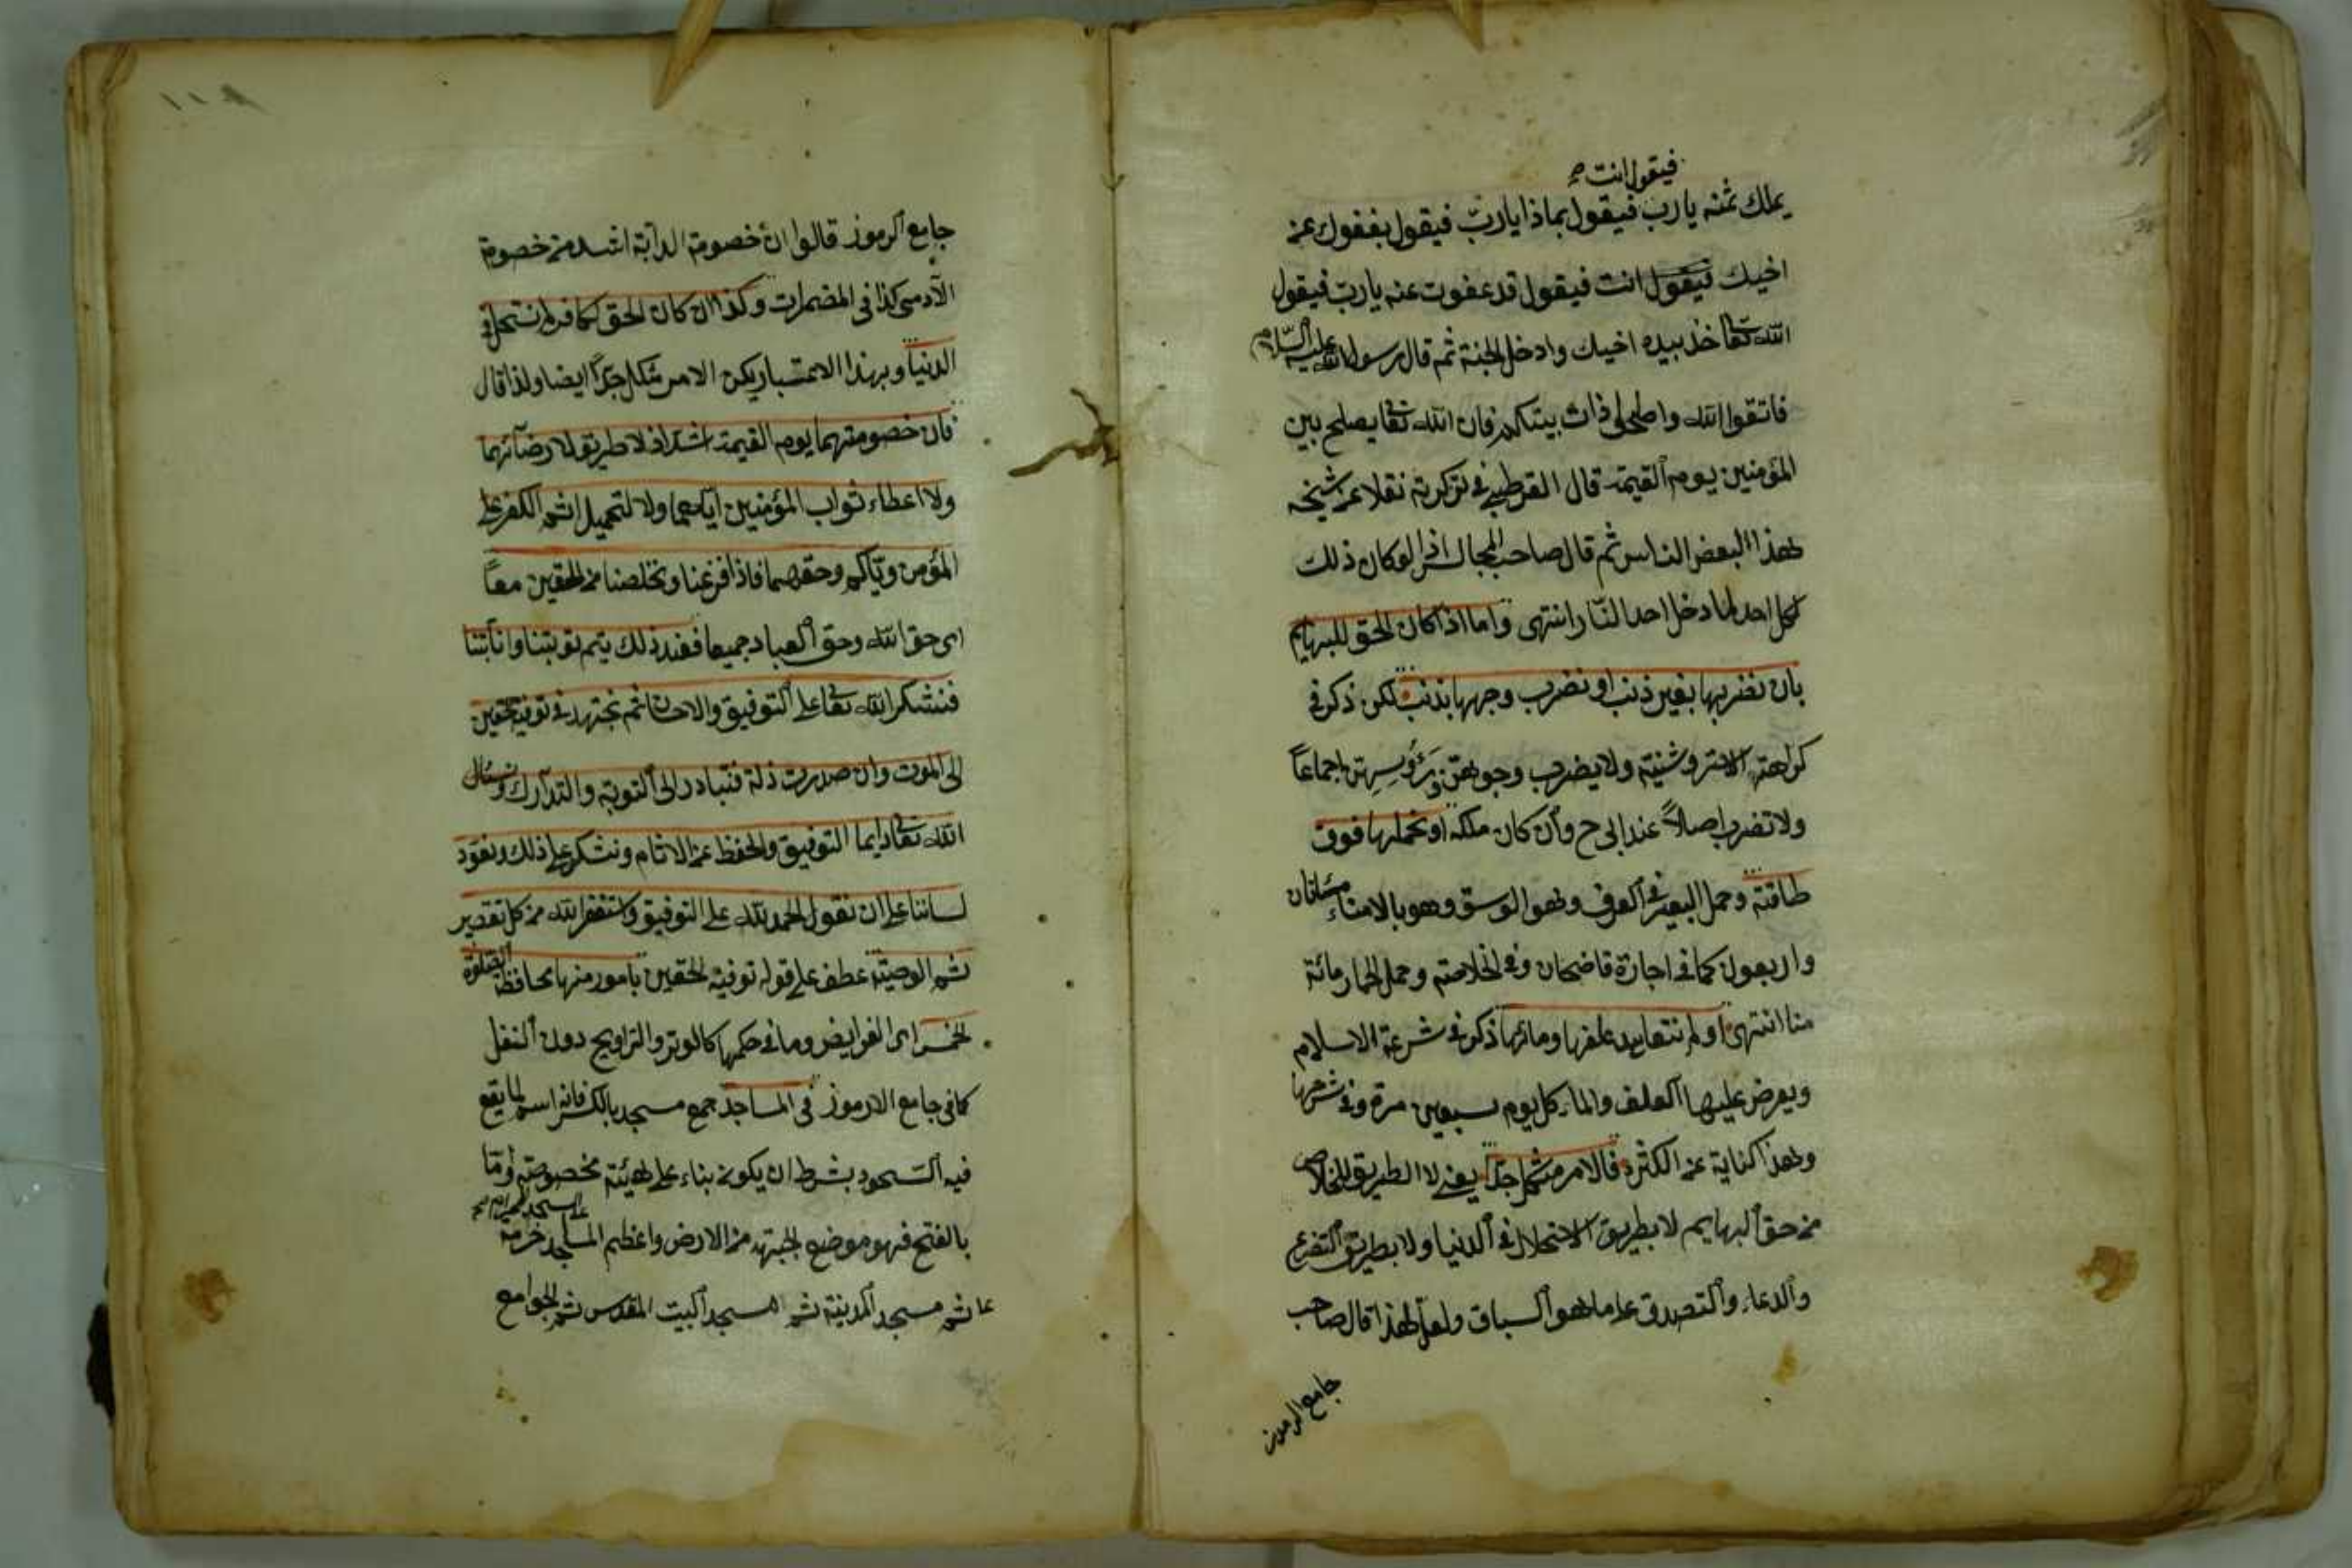 فيقول انت صح
يملك ثمنه يا رب فيقول بماذا يا ربّ فيقول بعفوك عن
اخيك فيقول انت فيقول قد عفوت عنه يا ربّ فيقول
الله تعا خذ بيده اخيك وادخل الجنة ثم قال رسول الله عليه السّلام
فاتقوا الله واصلحوا ذات بينكم فان الله تعا يصلح بين
المؤمنين يوم القيمة قال القرطبي في تذكرته نقلا عن شيخه
هذا البعض الناس ثم قال صاحب المجالس اذا لو كان ذلك
لكل احد لما دخل احد النّار انتهى واما اذا كان الحق للبهايم
بان نضربها بغير ذنب او نضرب وجهها بذنب لكن ذكر في
كراهته ولا يضرب وجوههن اجماعاً
ولا تضرب اصلاً عند ابى ح وأن كان ملكه او نحملها فوق
طاقته وحمل البعير في العرف وهو الوسق وهو بالامناء مئتان
واربعون كما في اجارة قاضيخان وفي الخلاصة وحمل الحمار مائة
منا انتهى او لم نتعاهد علفها ومائها ذكر في شرعة الاسلام
ويعرض عليها العلف والماء كل يوم سبعين مرة وفي شرحها
وهذا كناية عن الكثرة فالامر مشكل جدّا يعني لا الطريق للخلاص
من حق البهايم لا بطريق الاستحلال في الدنيا ولا بطريق التضرع
والدعاء والتصدق على ما هو السباق ولعلّ لهذا قال صاحب
جامع الرموز
١١٨
جامع الرموز قالوا ان خصومة الدآبة اشد من خصومة
الآدمى كذا في المضمرات وكذا ان كان الحق لكافر لم نستحل في
الدنيا وبهذا الاعتبار يكن الامر مشكل جدّاً ايضا ولذا قال
فان خصومتهما يوم القيمة اشد اذ لا طريق لا رضآئهما
ولا اعطاء ثواب المؤمنين ايّاهما ولا لتحميل اثم الكفر على
المؤمن وحقهما فاذا فرغنا وتخلصنا من الحقين معاً
اى حق الله وحق العباد جميعا فعند ذلك يتم توبتنا وانابتنا
فنشكر الله تعا على التوفيق والاحسان ثم نجتهد في توفية الحقين
الى الموت وان صدرت ذلة فنبادر الى التوبة والتدآرك ونسئال
الله تعا دايما التوفيق والحفظ عن الاثام ونشكر على ذلك ونعوّد
لساننا على ان نقول الحمد لله على التوفيق واستغفر الله من كل تقصير
ثم الوصيّة عطف على قوله توفية الحقين بامور منها محافظة الصلوة
الخمس اى الفرايض وما في حكمها كالوتر والتراويح دون النفل
كما في جامع الارموز في المساجد جمع مسجد بالكسر فانه اسم لما يقع
فيه السّجود بشرط ان يكون بناء على هيئة مخصوصة وامّا
بالفتح فهو موضع الجبهة من الارض واعظم المساجد حرمة
المسجد الحرام صح
عا ثم مسجد المدينة ثم المسجد البيت المقدس ثم الجوامع